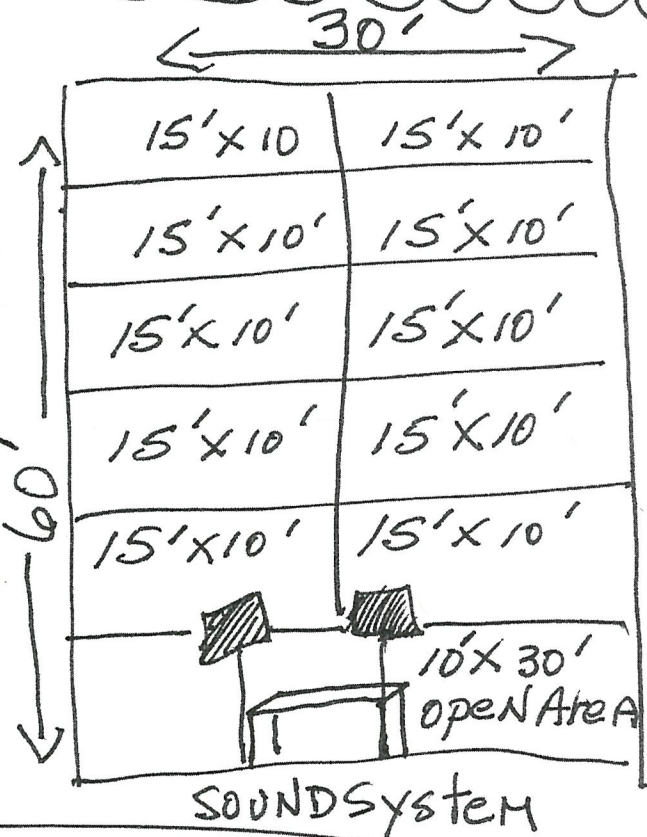 30'
15'x10 15'x10'
15'x10' 15'x10'
15'x10' 15'x10'
15'x10' 15'x10'
60'
15'x10' 15'x10'
10'x30'
OpeN AreA
SOUNDSysteM